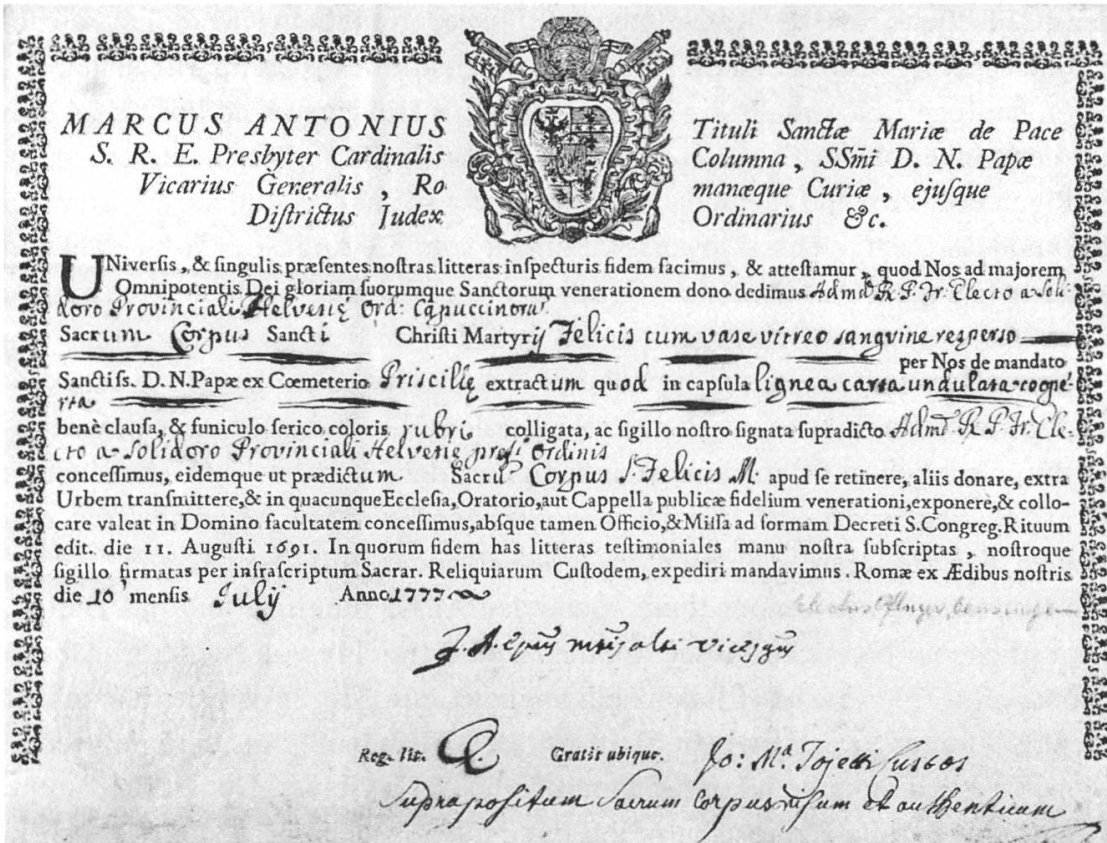 MARCUS ANTONIUS Tituli Sanctæ Mariæ de Pace
S. R. E. Presbyter Cardinalis Columna, SSm̃i D. N. Papæ
Vicarius Generalis, Ro- manæque Curiæ, ejuſque
Diſtrictus Judex Ordinarius &c.
UNiverſis, & ſingulis præſentes noſtras litteras inſpecturis fidem facimus, & atteſtamur, quod Nos ad majorem
Omnipotentis Dei gloriam ſuorumque Sanctorum venerationem dono dedimus Admd. R. P. Fr. Electo a Soli-
doro Provinciali Ord: Capuccinorum
Sacrum Corpus Sancti Chriſti Martyris Felicis cum vase vitreo sanguine resperso
per Nos de mandato
Sanctiſs. D. N. Papæ ex Cœmeterio Priscillę extractum quod in capſula lignea carta undulata
benè clauſa, & funiculo ſerico coloris rubri colligata, ac ſigillo noſtro ſignata ſupradicto Admd. R. P. Fr. Ele-
cto a Solidoro Provinciali Ordinis
conceſſimus, eidemque ut prædictum Sacrum Corpus S. Felicis M. apud ſe retinere, aliis donare, extra
Urbem transmittere, & in quacunque Eccleſia, Oratorio, aut Cappella publicæ fidelium venerationi, exponere, & collo-
care valeat in Domino facultatem conceſſimus, abſque tamen Officio, & Miſſa ad formam Decreti S. Congreg. Rituum
edit. die 11. Auguſti 1691. In quorum fidem has litteras teſtimoniales manu noſtra ſubſcriptas, noſtroque
ſigillo firmatas per infraſcriptum Sacrar. Reliquiarum Cuſtodem, expediri mandavimus. Romæ ex Ædibus noſtris
die 10 menſis Julij Anno 1777
Reg. lit. Gratis ubique. Jo: Ma. Tojetti Custos
Suprapositum Sacrum Corpus et authenticum